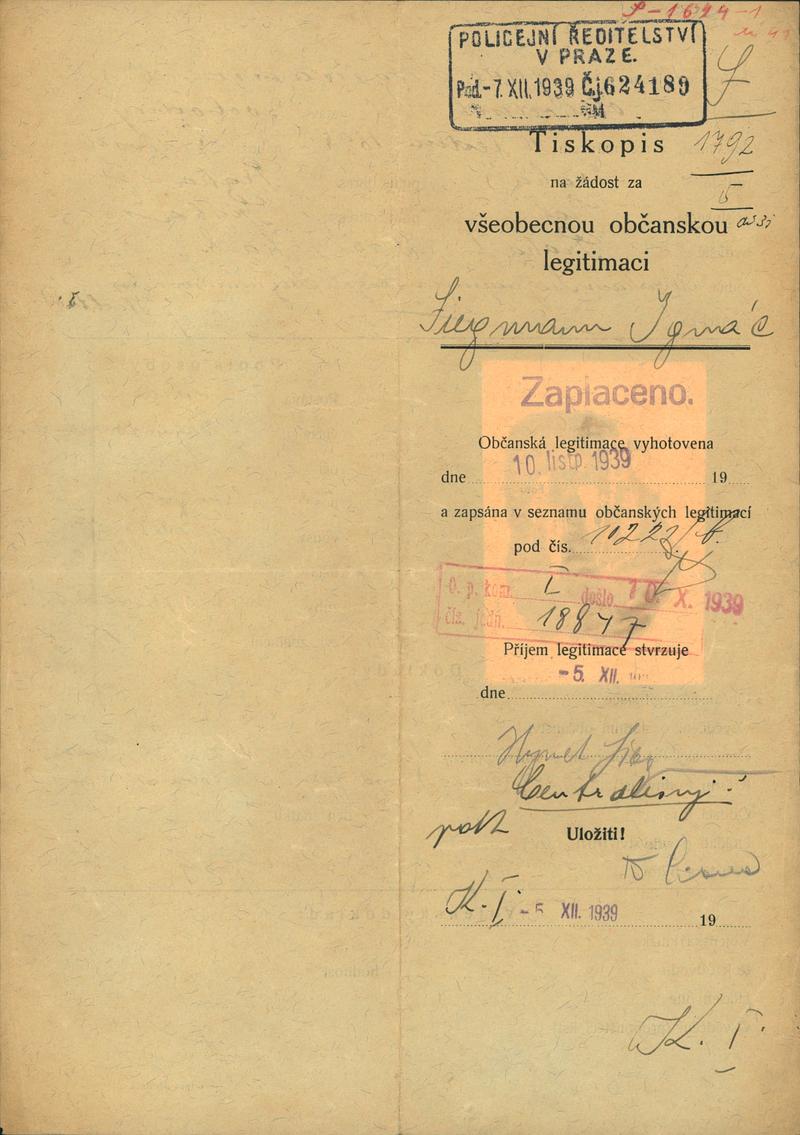 S-1694-1
POLICEJNÍ ŘEDITELSTVÍ
V PRAZE.
-7.XII.1939 Čj.624189
Tiskopis
1792
na žádost za
všeobecnou občanskou
legitimaci
Siegmann Ignác
Zaplaceno.
Občanská legitimace vyhotovena
10. listp. 1939
dne 19
a zapsána v seznamu občanských legitimací
pod čís.
O. p. kom. I došlo 10. X. 1939
čís. jedn. 18847
Příjem legitimace stvrzuje
-5. XII.
dne
Uložiti!
K. I. -5 XII. 1939 19
K. I.